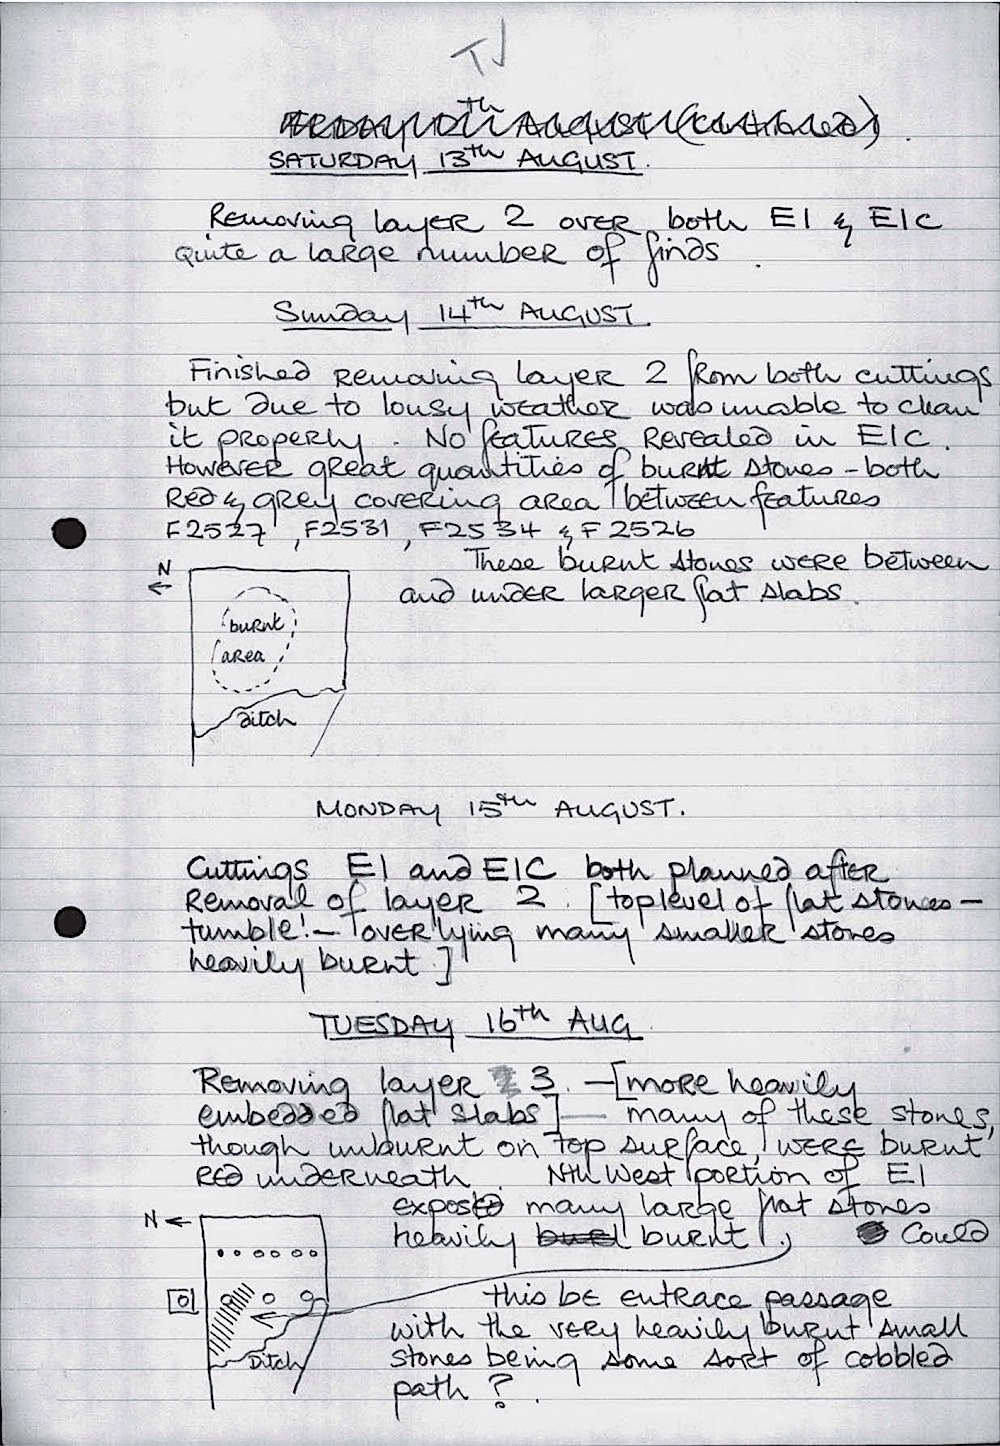 TJ
SATURDAY 13th AUGUST.
Removing layer 2 over both E1 & E1C
quite a large number of finds.
Sunday 14th AUGUST
Finished removing layer 2 from both cuttings
but due to lousy weather was unable to clean
it properly. No features revealed in E1C.
However great quantities of burnt stones - both
red & grey covering area between features
F2527, F2531, F2534 & F2526
These burnt stones were between
and under larger flat slabs.
N
burnt
area
ditch
MONDAY 15th AUGUST.
Cuttings E1 and E1C both planned after
removal of layer 2. [top level of flat stones -
tumble! - overlying many smaller stones
heavily burnt]
TUESDAY 16th AUG.
Removing layer 3. - [more heavily
embedded flat slabs] - many of these stones,
though unburnt on top surface, were burnt
red underneath. Nth West portion of E1
exposed many large flat stones
heavily burnt. Could
N
this be entrace passage
with the very heavily burnt small
stones being some sort of cobbled
path?
Ditch